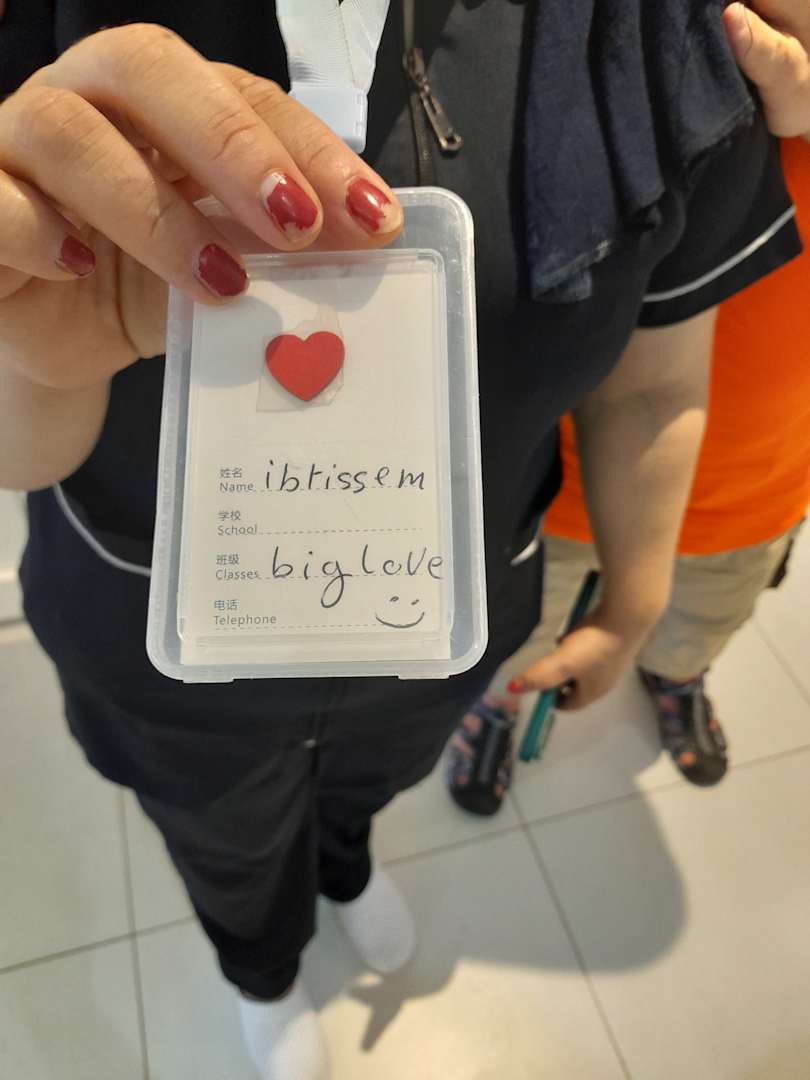 姓名
Name ibtissem
学校
School
班级
Classes big love
电话
Telephone